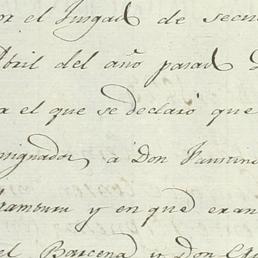 or el Jusgad de secu
Abril del año pasad
a el que se declaró que
nsignados a Don Faustin
ramburu y en que exan
el Barcena y Don